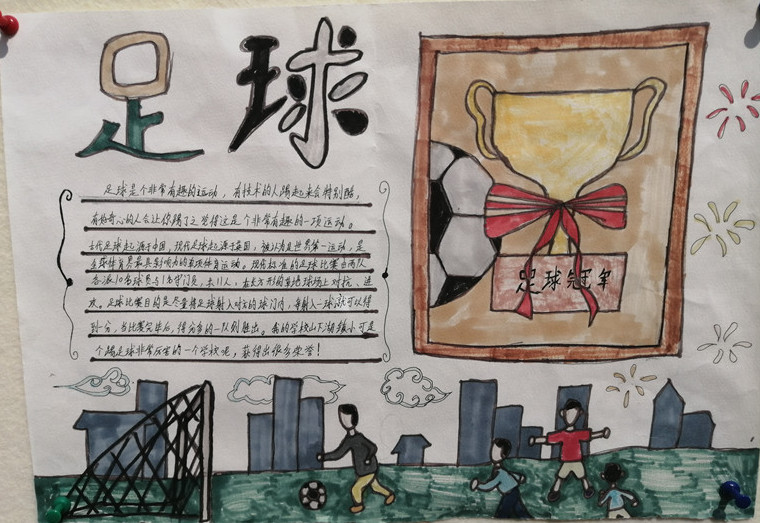 足球
足球是个非常有趣的运动，有技术的人踢起来会特别酷，
有好奇心的人会让你踢了之觉得这是个非常有趣的一项运动。
古代足球起源于中国，现代足球起源于英国，被认为是世界第一运动，是
全球体育界最具影响力的单项体育运动。现代标准的足球比赛由两队
各派10名球员与1名守门员，共11人，在长方形的草地球场上对抗、进
攻。足球比赛目的是尽量将足球射入对方的球门内，每射入一球就可以得
到一分，当比赛完毕后，得分多的一队则胜出。我的学校山下湖镇小可是
个踢足球非常厉害的一个学校呢，获得出很多荣誉！
足球冠军